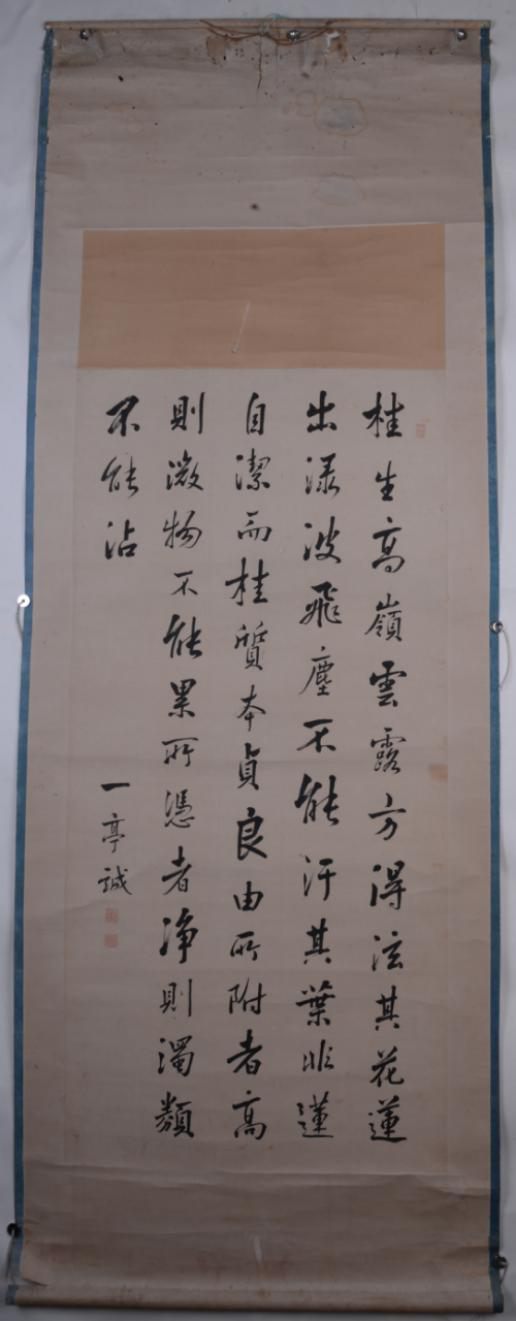 桂生高嶺雲露方得泫其花蓮
出淥波飛塵不能汙其葉非蓮
自潔而桂質本貞良由所附者高
則微物不能累所憑者淨則濁類
不能沾
一亭誠